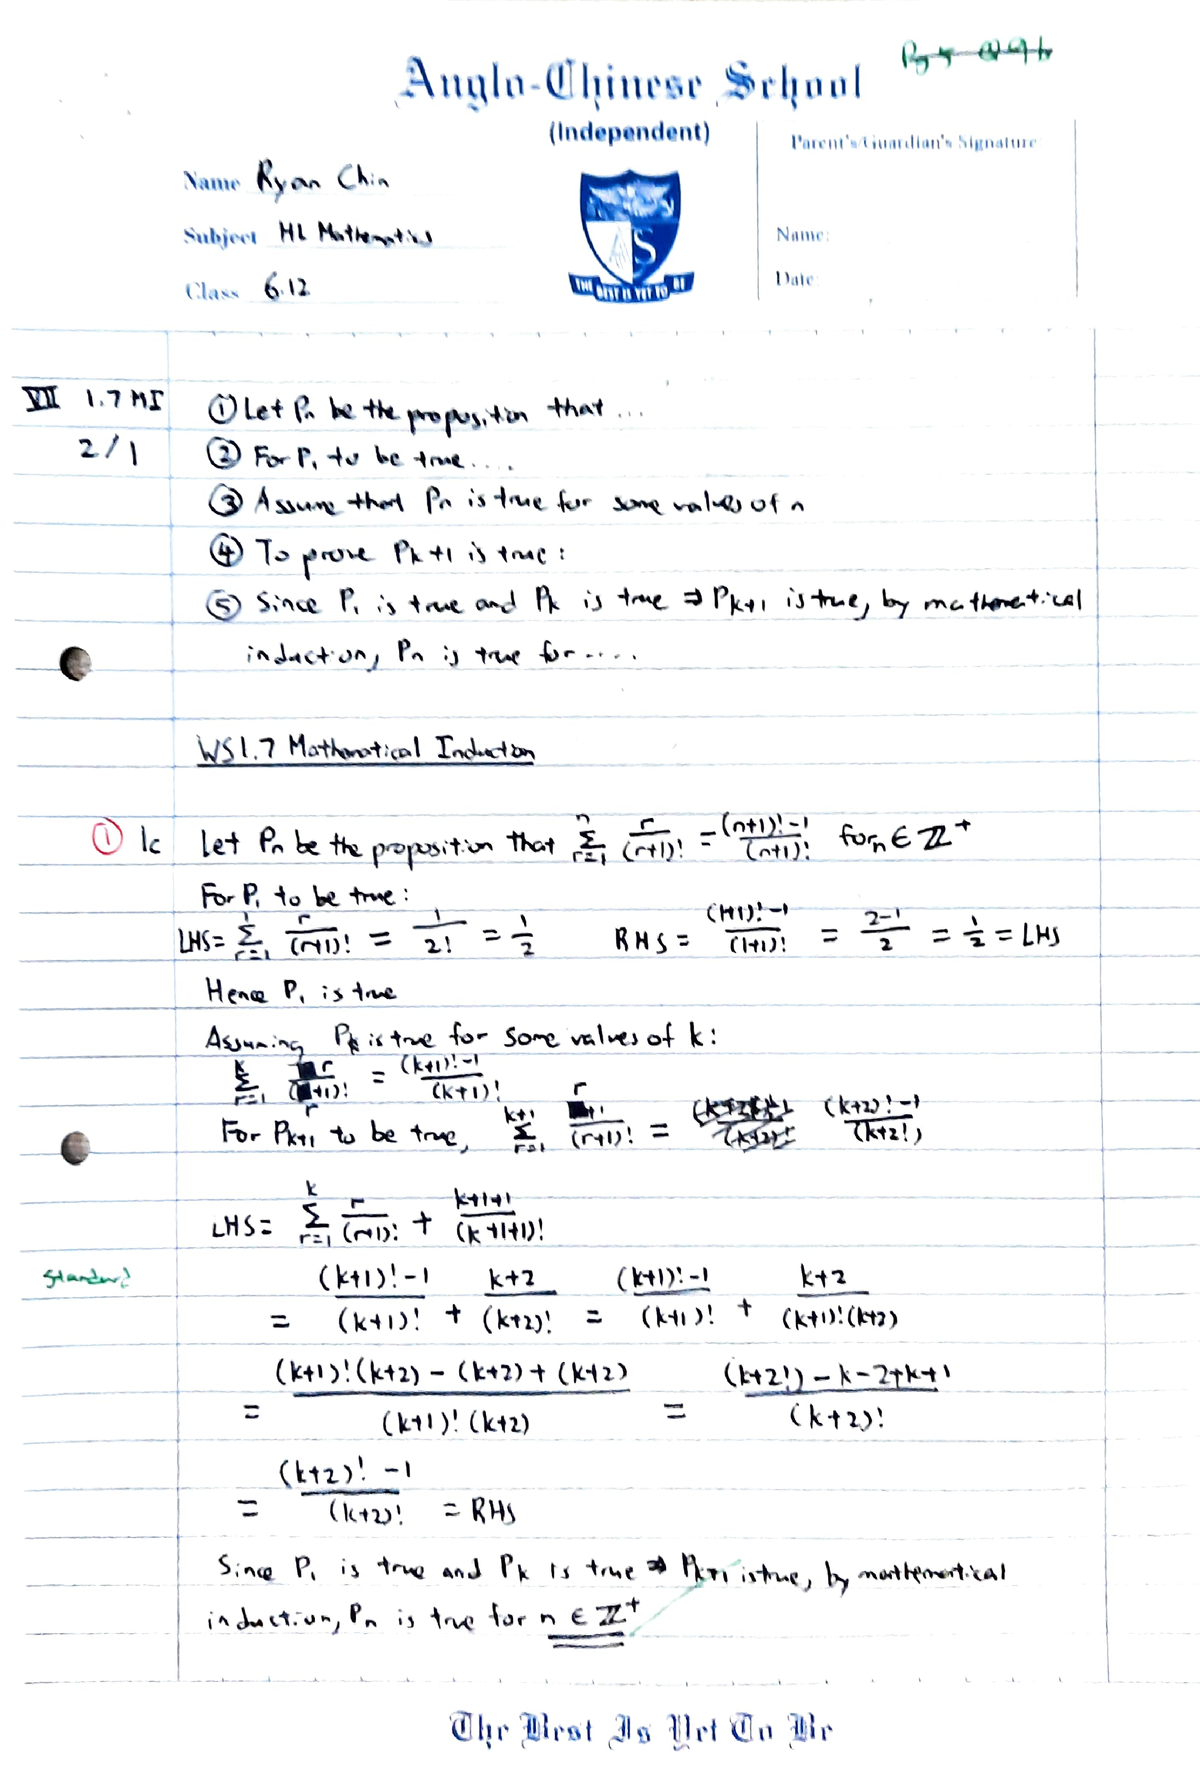 Anglo-Chinese School
(Independent)
Parent's/Guardian's Signature
Name Ryan Chin
Subject HL Mathematics
Name:
Class 6.12
Date:
THE BEST IS YET TO BE
VII 1.7 MI
2/1
① Let Pn be the proposition that ...
② For P₁ to be true....
③ Assume that Pn is true for some values of n
④ To prove Pk+1 is true:
⑤ Since P₁ is true and Pk is true ⇒ Pk+1 is true, by mathematical
induction, Pn is true for ....
WS1.7 Mathematical Induction
① 1c Let Pn be the proposition that n Σ r=1 r/(r+1)! = ((n+1)!-1)/(n+1)! for n ∈ ℤ⁺
For P₁ to be true:
LHS = 1 Σ r=1 r/(r+1)! = 1/2! = 1/2 RHS = ((1+1)!-1)/(1+1)! = (2-1)/2 = 1/2 = LHS
Hence P₁ is true
Assuming Pk is true for some values of k:
k Σ r=1 r/(r+1)! = ((k+1)!-1)/(k+1)!
For Pk+1 to be true, k+1 Σ r=1 r/(r+1)! = ((k+2)!-1)/(k+2!)
LHS = k Σ r=1 r/(r+1)! + (k+1+1)/(k+1+1)!
Standard
= ((k+1)!-1)/(k+1)! + (k+2)/(k+2)! = ((k+1)!-1)/(k+1)! + (k+2)/((k+1)!(k+2))
= ((k+1)!(k+2) - (k+2) + (k+2))/((k+1)!(k+2)) = ((k+2!) - k - 2 + k + 1)/(k+2)!
= ((k+2)! - 1)/(k+2)! = RHS
Since P₁ is true and Pk is true ⇒ Pk+1 is true, by mathematical
induction, Pn is true for n ∈ ℤ⁺
The Best Is Yet To Be